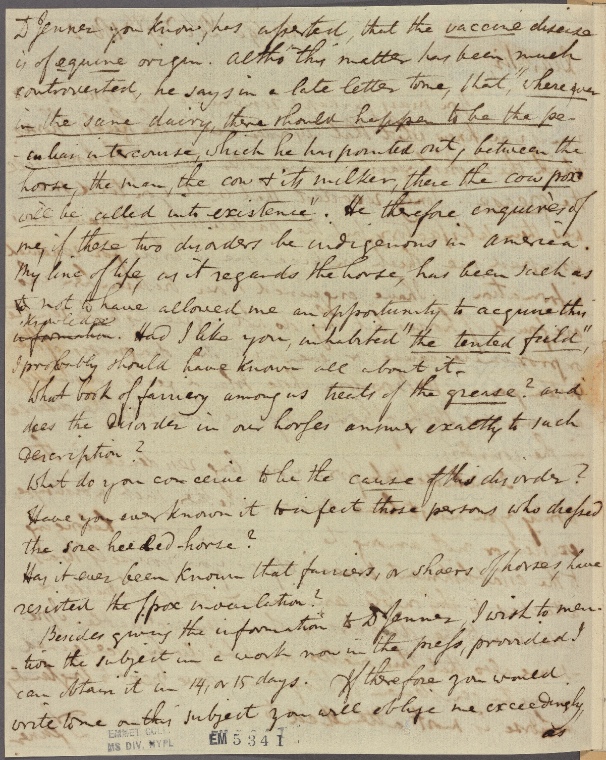 Dr Jenner you know, has asserted, that the vaccine disease
is of equine origin. Altho' this matter has been much
controverted, he says in a late letter to me, that, "where ever
in the same dairy, there should happen to be the pe-
-culiar intercourse, which he has pointed out, between the
horse, the man, the cow & its milker, there the cow pox
will be called into existence". He therefore enquires of
me, if these two disorders be indigenous in America.
My line of life, as it regards the horse, has been such as
not to have allowed me an opportunity to acquire this
knowledge
information. Had I like you, inhabited "the tented field",
I probably should have known all about it.
What book of farriery among us treats of the grease? and
does the disorder in our horses answer exactly to such
description?
What do you conceive to be the cause of this disorder?
Have you ever known it to infect those persons who dressed
the sore heeled-horse?
Has it ever been known that farriers, or shoers of horses, have
resisted the Spox inoculation?
Besides giving the information to Dr Jenner, I wish to men-
-tion the subject in a work now in the press, provided I
can obtain it in 14, or 15 days. If therefore you would
write to me on this subject you will oblige me exceedingly,
as
EMMET COLL.
MS DIV. NYPL
EM 5341